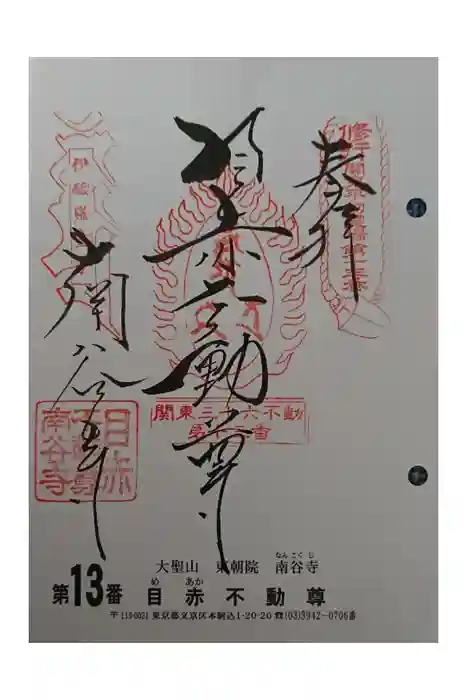 奉拝
目赤不動尊
南谷寺
関東三十六不動
第十三番
目赤
不動尊
南谷寺
大聖山 東朝院 南谷寺
なんこくじ
第13番 目赤不動尊
め あか
〒113-0021 東京都文京区本駒込1-20-20 ☎(03)3942-0706番